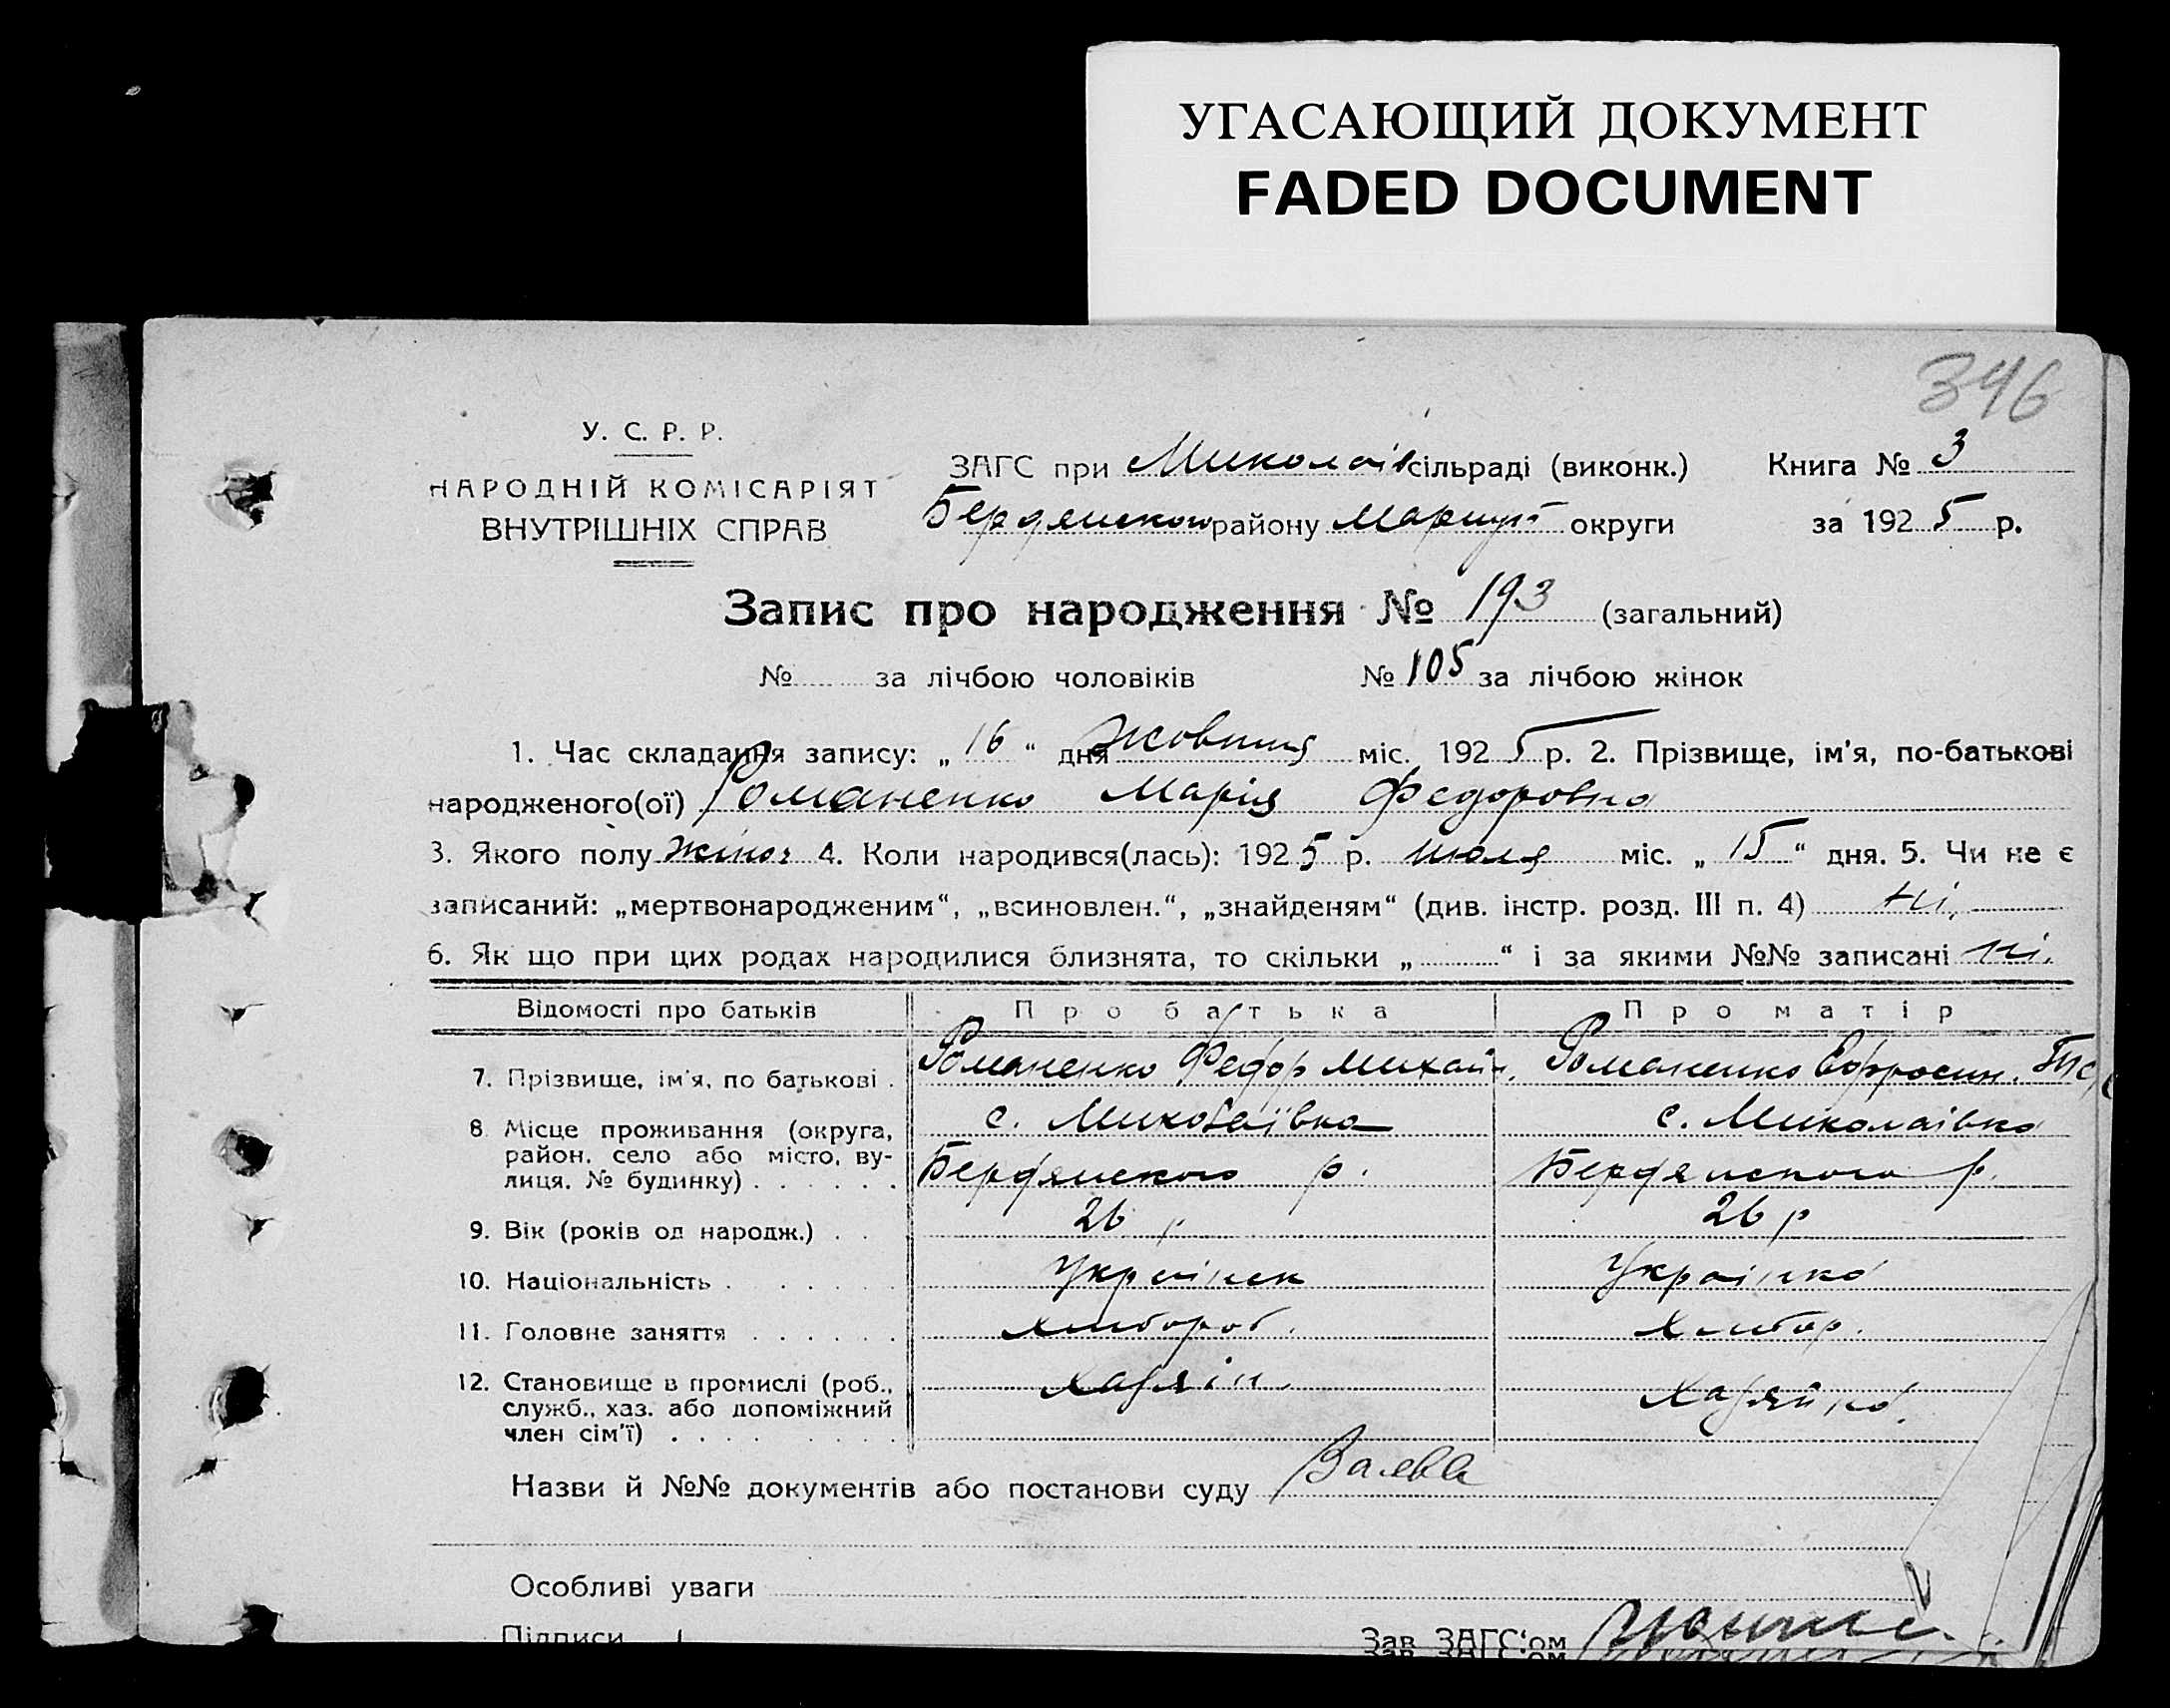 УГАСАЮЩИЙ ДОКУМЕНТ
FADED DOCUMENT
346
У. С. Р. Р.
НАРОДНІЙ КОМІСАРІЯТ
ВНУТРІШНІХ СПРАВ
ЗАГС при Миколаїв сільраді (виконк.) Книга № 3
Бердянского району Маріуп округи за 192 5 р.
Запис про народження № 193 (загальний)
№ за лічбою чоловіків № 105 за лічбою жінок
1. Час складання запису: „ 16 “ дня жовтня міс. 192 5 р. 2. Прізвище, ім'я, по-батькові
народженого(ої) Романенко Марія Федоровна
3. Якого полу жіноч 4. Коли народився(лась): 192 5 р. июля міс. „ 15 “ дня. 5. Чи не є
записаний: „мертвонародженим“, „всиновлен.“, „знайденям“ (див. інстр. розд. III п. 4) ні,
6. Як що при цих родах народилися близнята, то скільки „ “ і за якими №№ записані ні.
Відомості про батьків Про батька Про матір
7. Прізвище, ім'я, по батькові . Романенко Федор Михайл. Романенко Ефросин.
8. Місце проживання (округа, с. Миколаївка с. Миколаівка
район, село або місто, ву-
лиця, № будинку) . . . . . . Бердянского р. Бердянского р.
9. Вік (років од народж.) . . 26 р 26 р
10. Національність . . . . . Українек Українка
11. Головне заняття . . . . . . хлібороб. хлібор.
12. Становище в промислі (роб., хазяїн. хазяйка.
служб., хаз. або допоміжний
член сім'ї) . . . . . . . .
Назви й №№ документів або постанови суду
Особливі уваги
Підписи
Зав. ЗАГС'ом
Зав. ЗАГС'ом